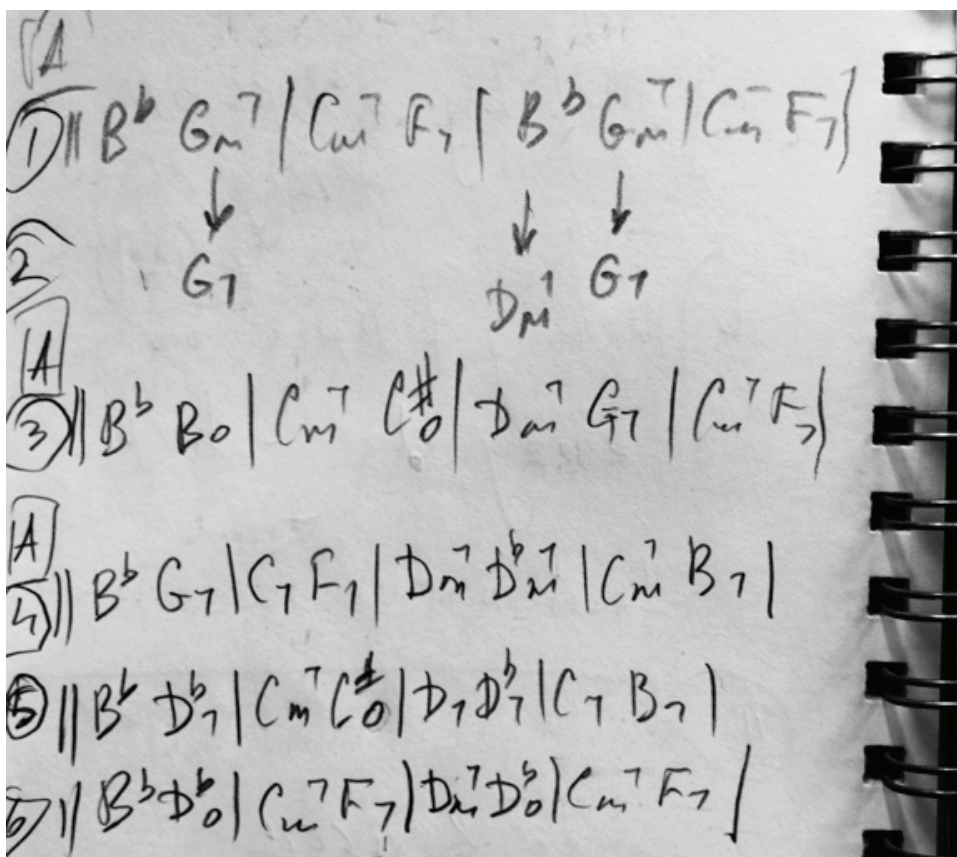 A
① || B♭ Gm7 | Cm7 F7 | B♭ Gm7 | Cm7 F7 |
↓ ↓ ↓
2 G7 Dm7 G7
A
③ || B♭ Bo | Cm7 C#o | Dm7 G7 | Cm7 F7 |
A
④ || B♭ G7 | C7 F7 | Dm7 D♭m7 | Cm7 B7 |
⑤ || B♭ D♭7 | Cm7 C#o | D7 D♭7 | C7 B7 |
⑥ || B♭ D♭o | Cm7 F7 | Dm7 D♭o | Cm7 F7 |